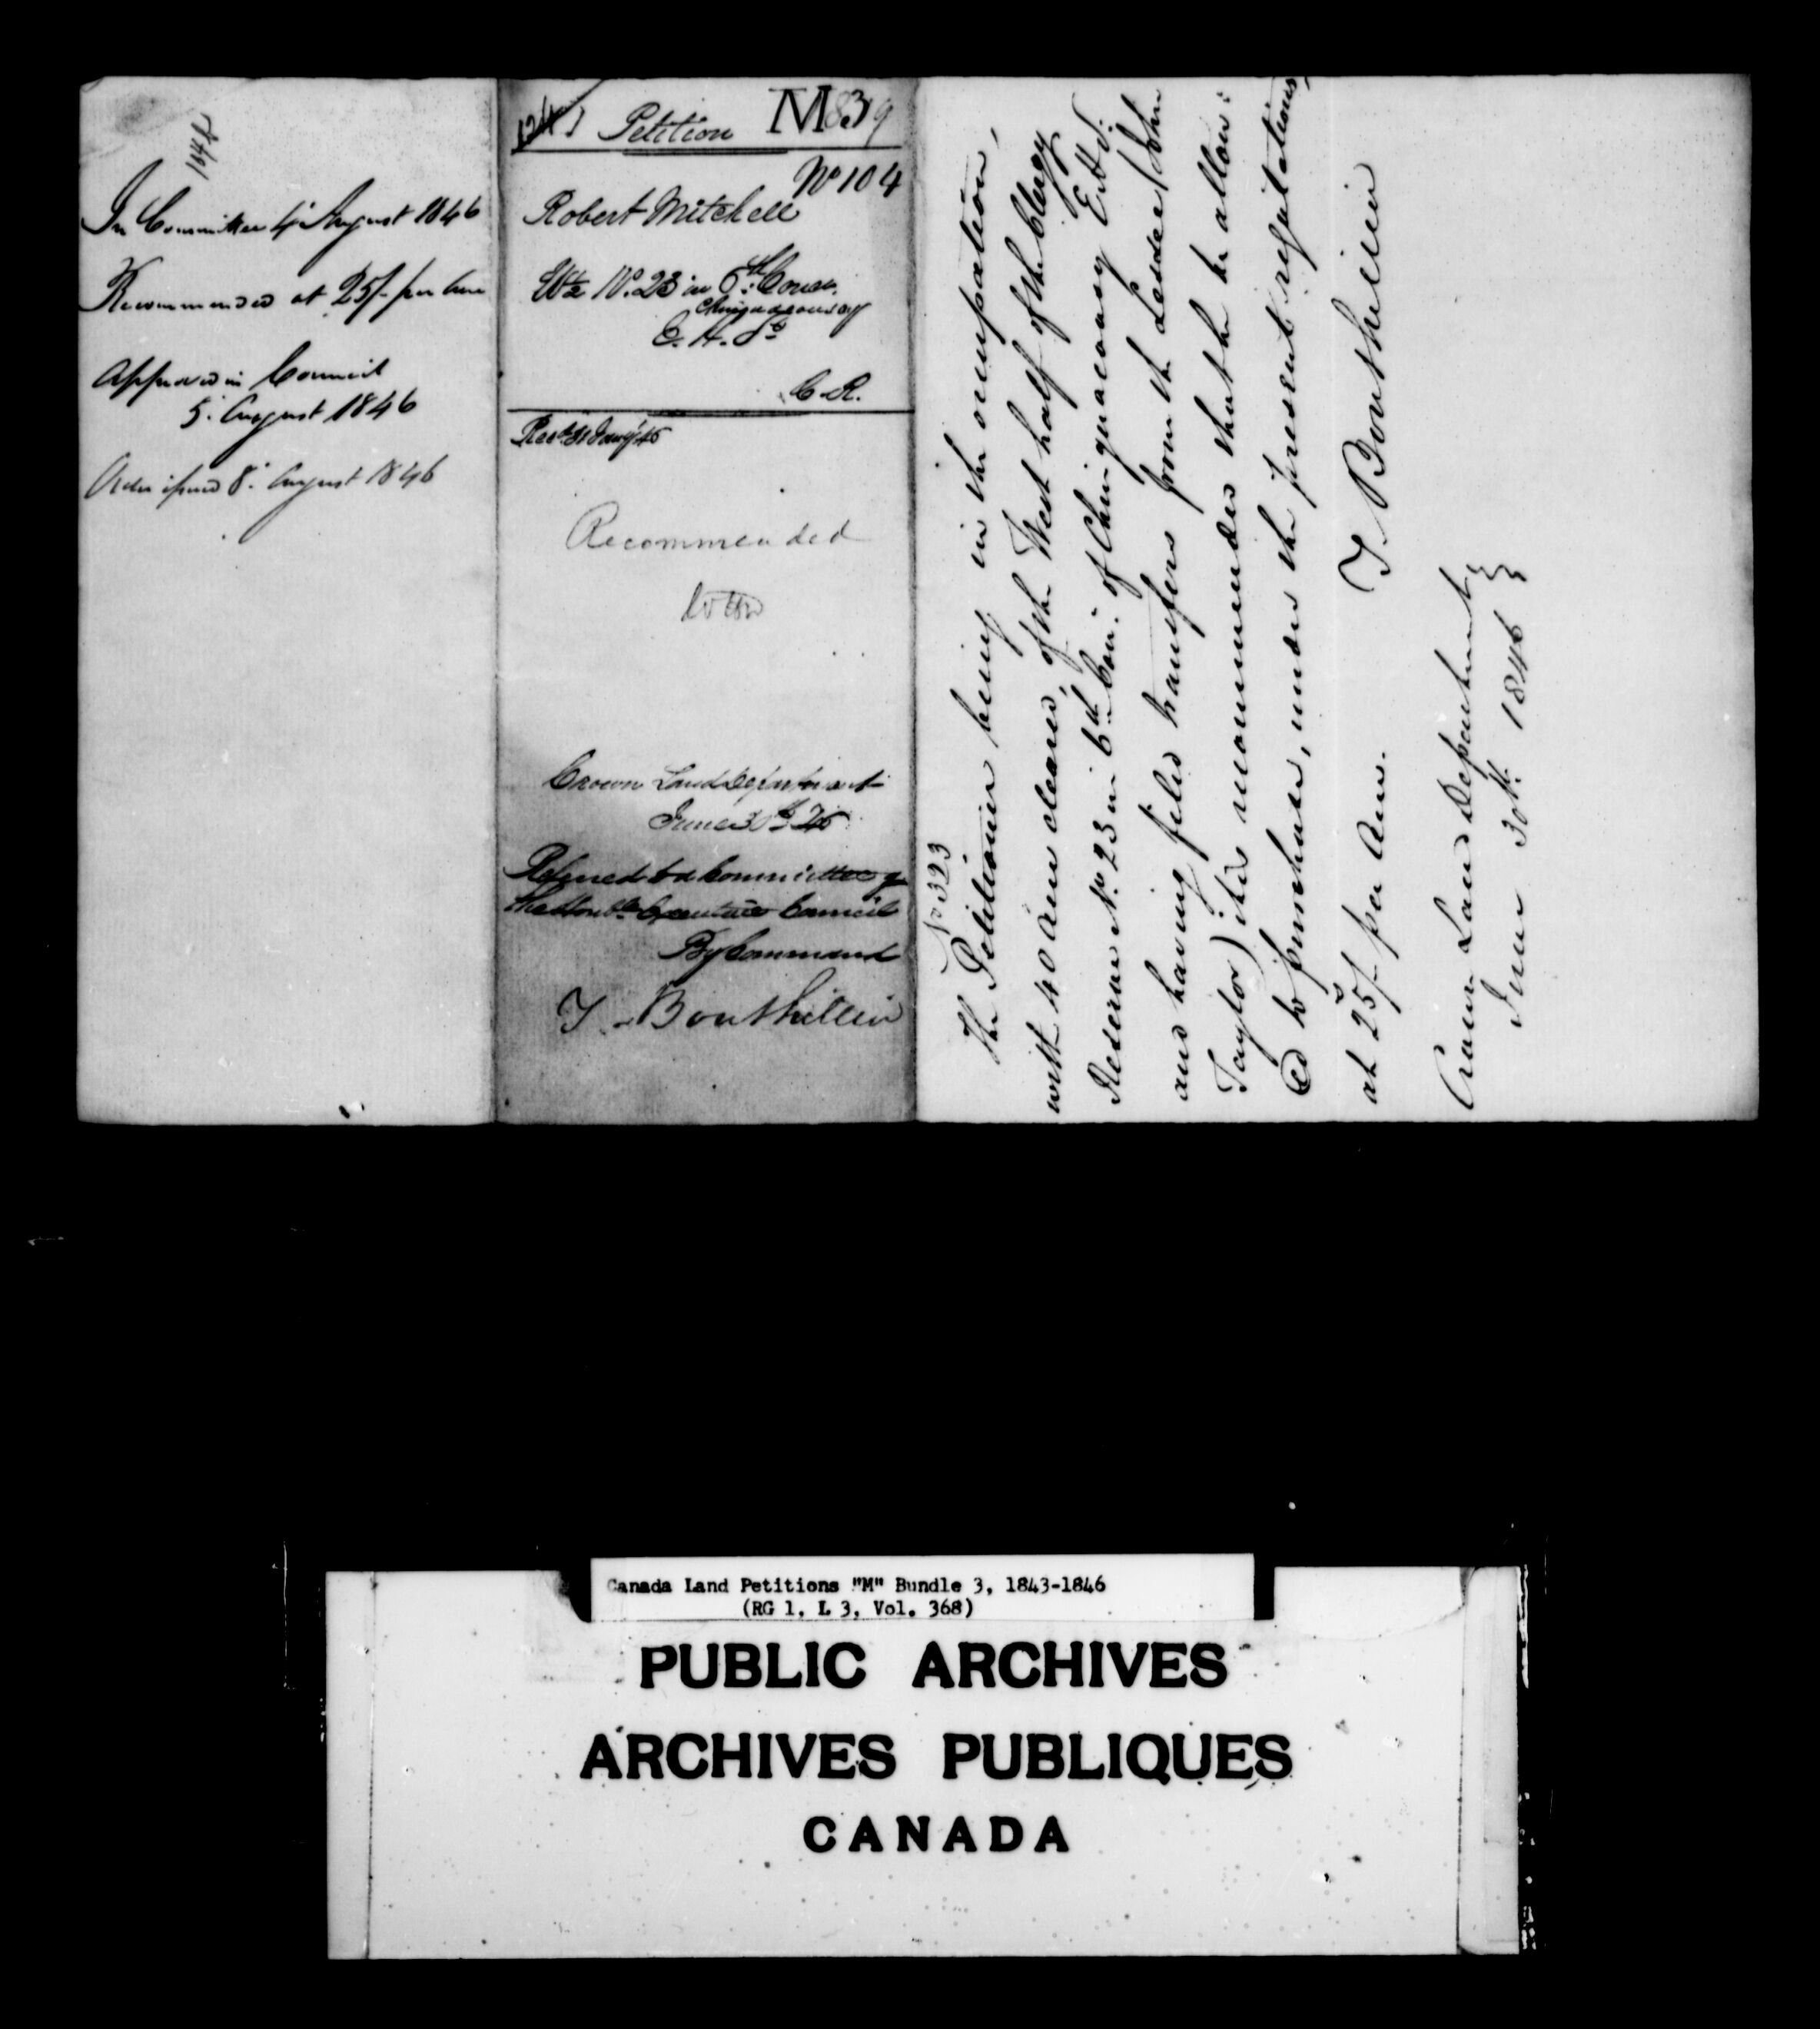 In Committee 4 August 1846
Recommended at 25/- per Acre
Approved in Council
5. August 1846
Order issued 8. August 1846
Petition M 839
No 104
Robert Mitchell
W½ No. 23 in 6th Concn.
Chinguacousy
E. H. St
C. R.
Recommended
Crown Land Department
June 30th 46
Referred to a Committee of
the Honble Executive Council
By Command
T. Bouthillier
No 323
The Petitioner being in the occupation,
with 40 Acres cleared, of the West half of the Clergy
Reserve No. 23 in 6th Con: of Chinguacousy E. H. S.
and having filed transfers from the Lessee (John
Taylor) it is recommended that he be allow:
ed to purchase, under the present regulations,
at 25/- per Acre.
T. Bouthillier
Crown Land Department
June 30th 1846
Canada Land Petitions "M" Bundle 3, 1843-1846
(RG 1, L 3, Vol. 368)
PUBLIC ARCHIVES
ARCHIVES PUBLIQUES
CANADA